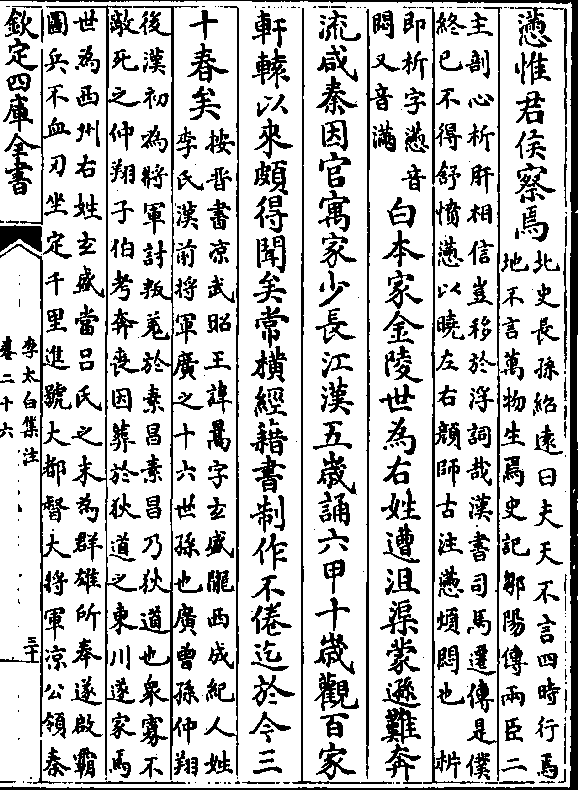 懣惟君侯察焉
北史長孫紹遠曰夫天不言四時行焉
地不言萬物生焉史記鄒陽傳兩臣二
主剖心析肝相信豈移於浮詞哉漢書司馬遷傳是僕
終已不得舒憤懣以曉左右顔師古注懣煩悶也 㭊
即析字懣音
悶又音滿
白本家金陵世為右姓遭沮渠蒙遜難奔
流咸秦因官寓家少長江漢五歲誦六甲十歲觀百家
軒轅以來頗得聞矣常橫經籍書制作不倦迄於今三
十春矣
按晉書凉武昭王諱暠字玄盛隴西成紀人姓
李氏漢前將軍廣之十六世孫也廣曾孫仲翔
後漢初為將軍討叛羌於素昌素昌乃狄道也衆寡不
敵死之仲翔子伯考奔喪因葬於狄道之東川遂家焉
世為西州右姓玄盛當吕氏之末為群雄所奉遂啟霸
圖兵不血刃坐定千里進號大都督大將軍涼公領秦
欽定四庫全書
李太白集注
卷二十六
三十